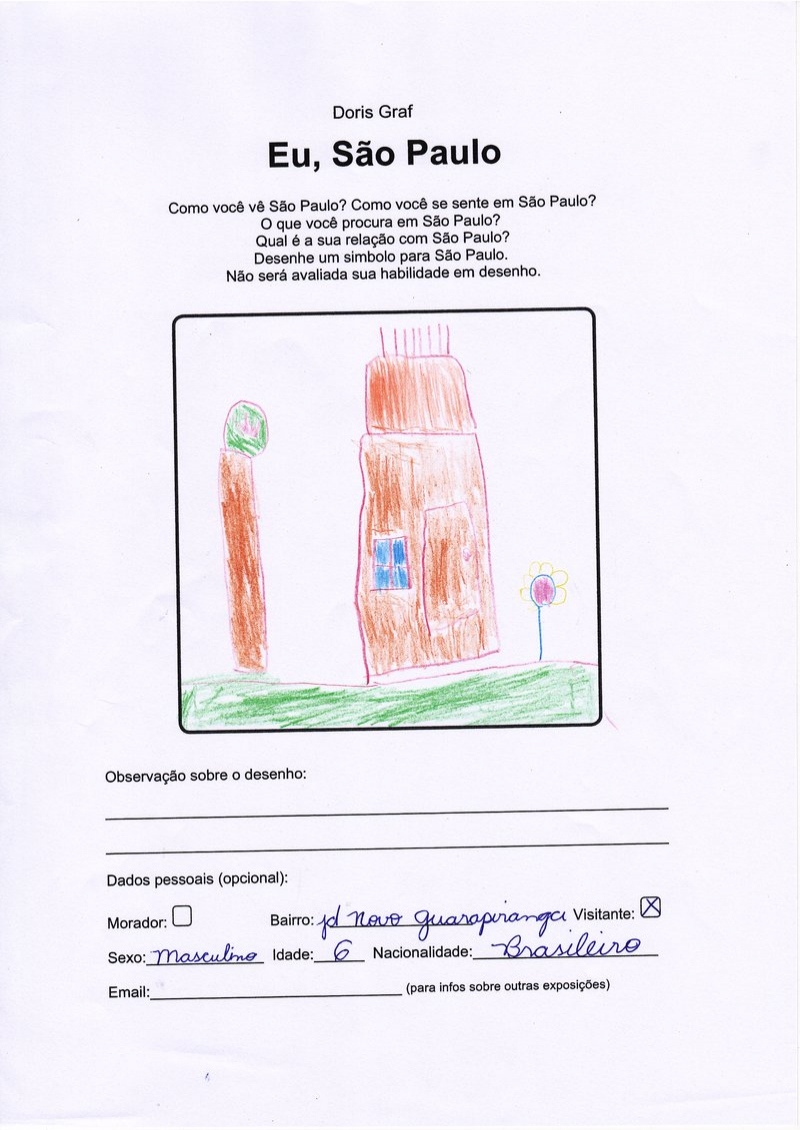 Doris Graf
Eu, São Paulo
Como você vê São Paulo? Como você se sente em São Paulo?
O que você procura em São Paulo?
Qual é a sua relação com São Paulo?
Desenhe um simbolo para São Paulo.
Não será avaliada sua habilidade em desenho.
Observação sobre o desenho:
Dados pessoais (opcional):
Morador: Bairro: jd Novo Guarapiranga Visitante: X
Sexo: Masculino Idade: 6 Nacionalidade: Brasileiro
Email: (para infos sobre outras exposições)